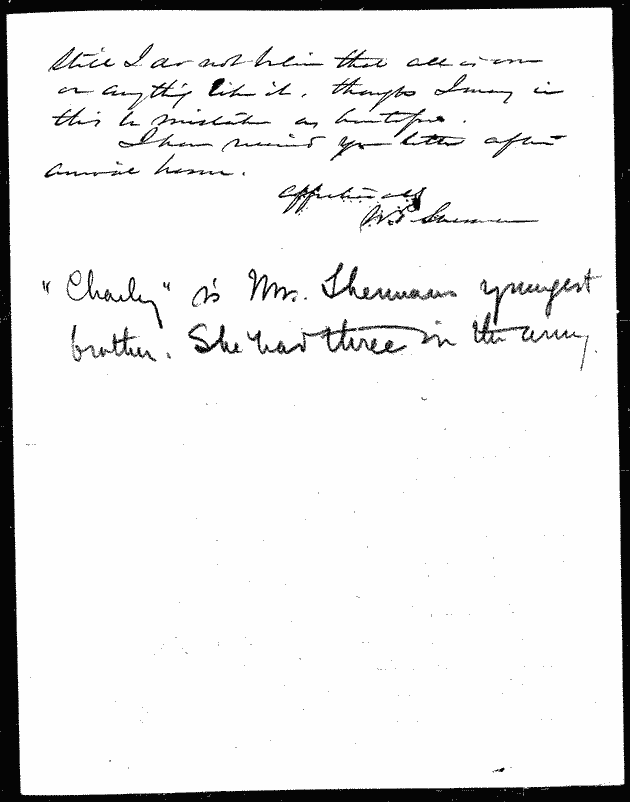 Still I do not believe that all is over
or anything like it, though I may in
this be mistaken as heretofore.
I have received your letter after
arrival home.
affectionately
W.T. Sherman
"Charley" is Mrs. Shermans youngest
brother. She had three in the army.